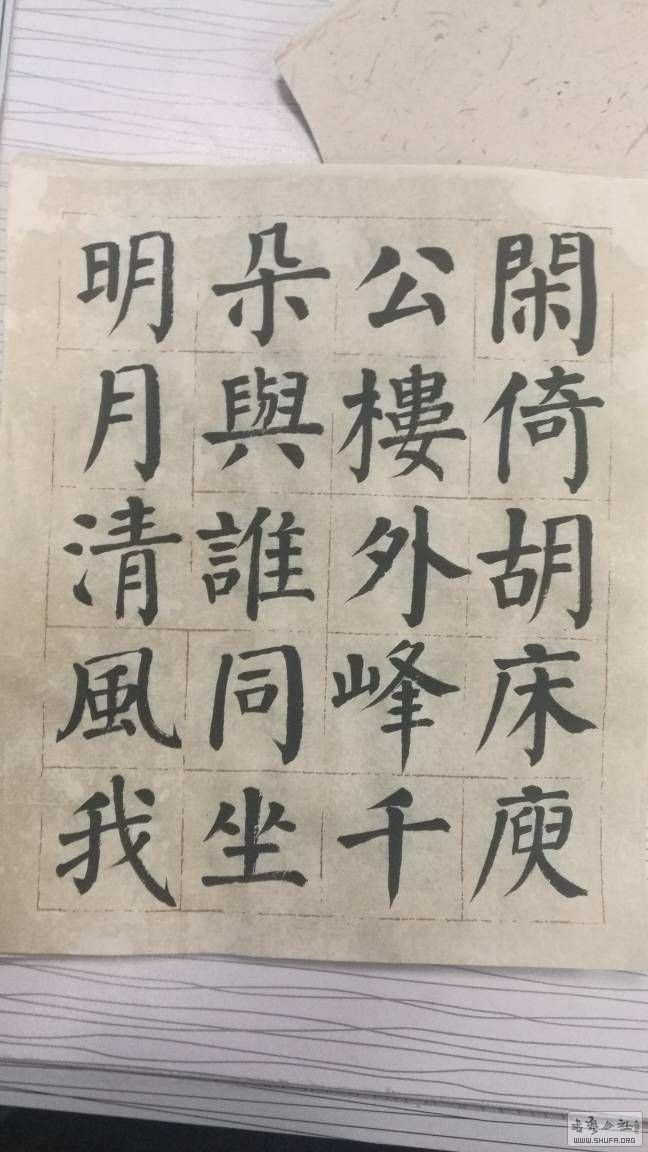 閑倚胡床庾
公樓外峰千
朵與誰同坐
明月清風我
書藝公社
WWW.SHUFA.ORG